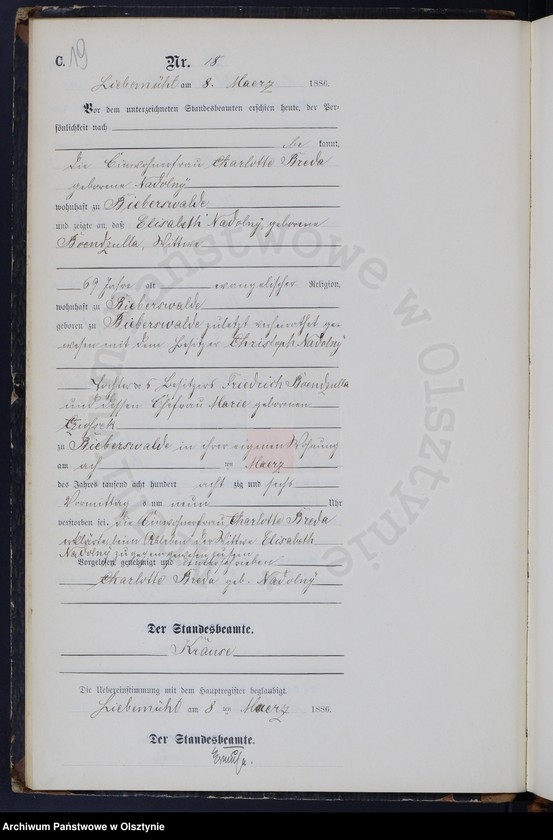 C. 19
Nr. 18
Liebemühl am 8. Maerz 1886.
Vor dem unterzeichneten Standesbeamten erschien heute, der Per-
sönlichkeit nach
be kannt,
die Einwohnerfrau Charlotte Breda
geborene Nadolny
wohnhaft zu Bieberswalde
und zeigte an, daß Elisabeth Nadolny, geborene
Boendzulla, Wittwe
69 Jahre alt evangelischer Religion,
wohnhaft zu Bieberswalde
geboren zu Bieberswalde zuletzt verheirathet ge-
wesen mit dem Besitzer Christoph Nadolny
Tochter des Besitzers Friedrich Boendzulla
und dessen Ehefrau Marie geborenen
zu Bieberswalde in ihrer eigenen Wohnung
am acht ten Maerz
des Jahres tausend acht hundert acht zig und sechs
Vormittag s um neun Uhr
verstorben sei. Die Einwohnerfrau Charlotte Breda
erklärte beim Ableben der Wittwe Elisabeth
Nadolny zugegen gewesen zu sein
Vorgelesen, genehmigt und unterschrieben
Charlotte Breda geb. Nadolny
Der Standesbeamte.
Krause
Die Uebereinstimmung mit dem Hauptregister beglaubigt
Liebemühl am 8 ten Maerz 1886.
Der Standesbeamte.
Archiwum Państwowe w Olsztynie
Archiwum Państwowe w Olsztynie